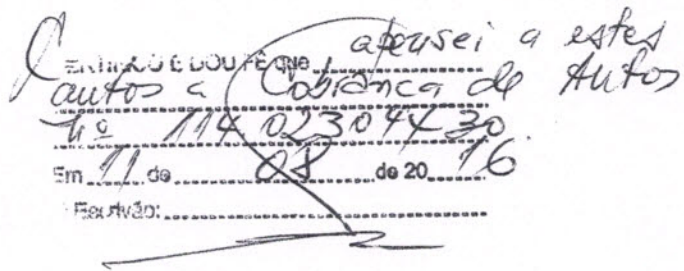 CERTIFICO E DOU FÉ que apensei a estes
autos a Cobrança de Autos
nº 114.02.023094-4-30
Em 11 de 08 de 20 16
Escrivão: